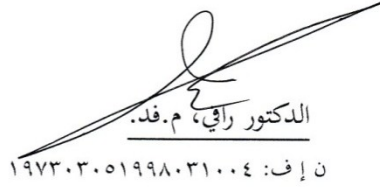 الدكتور رافي، م.فد.
ن إ ف: ١٩٧٣٠٣٠٥١٩٩٨٠٣١٠٠٤